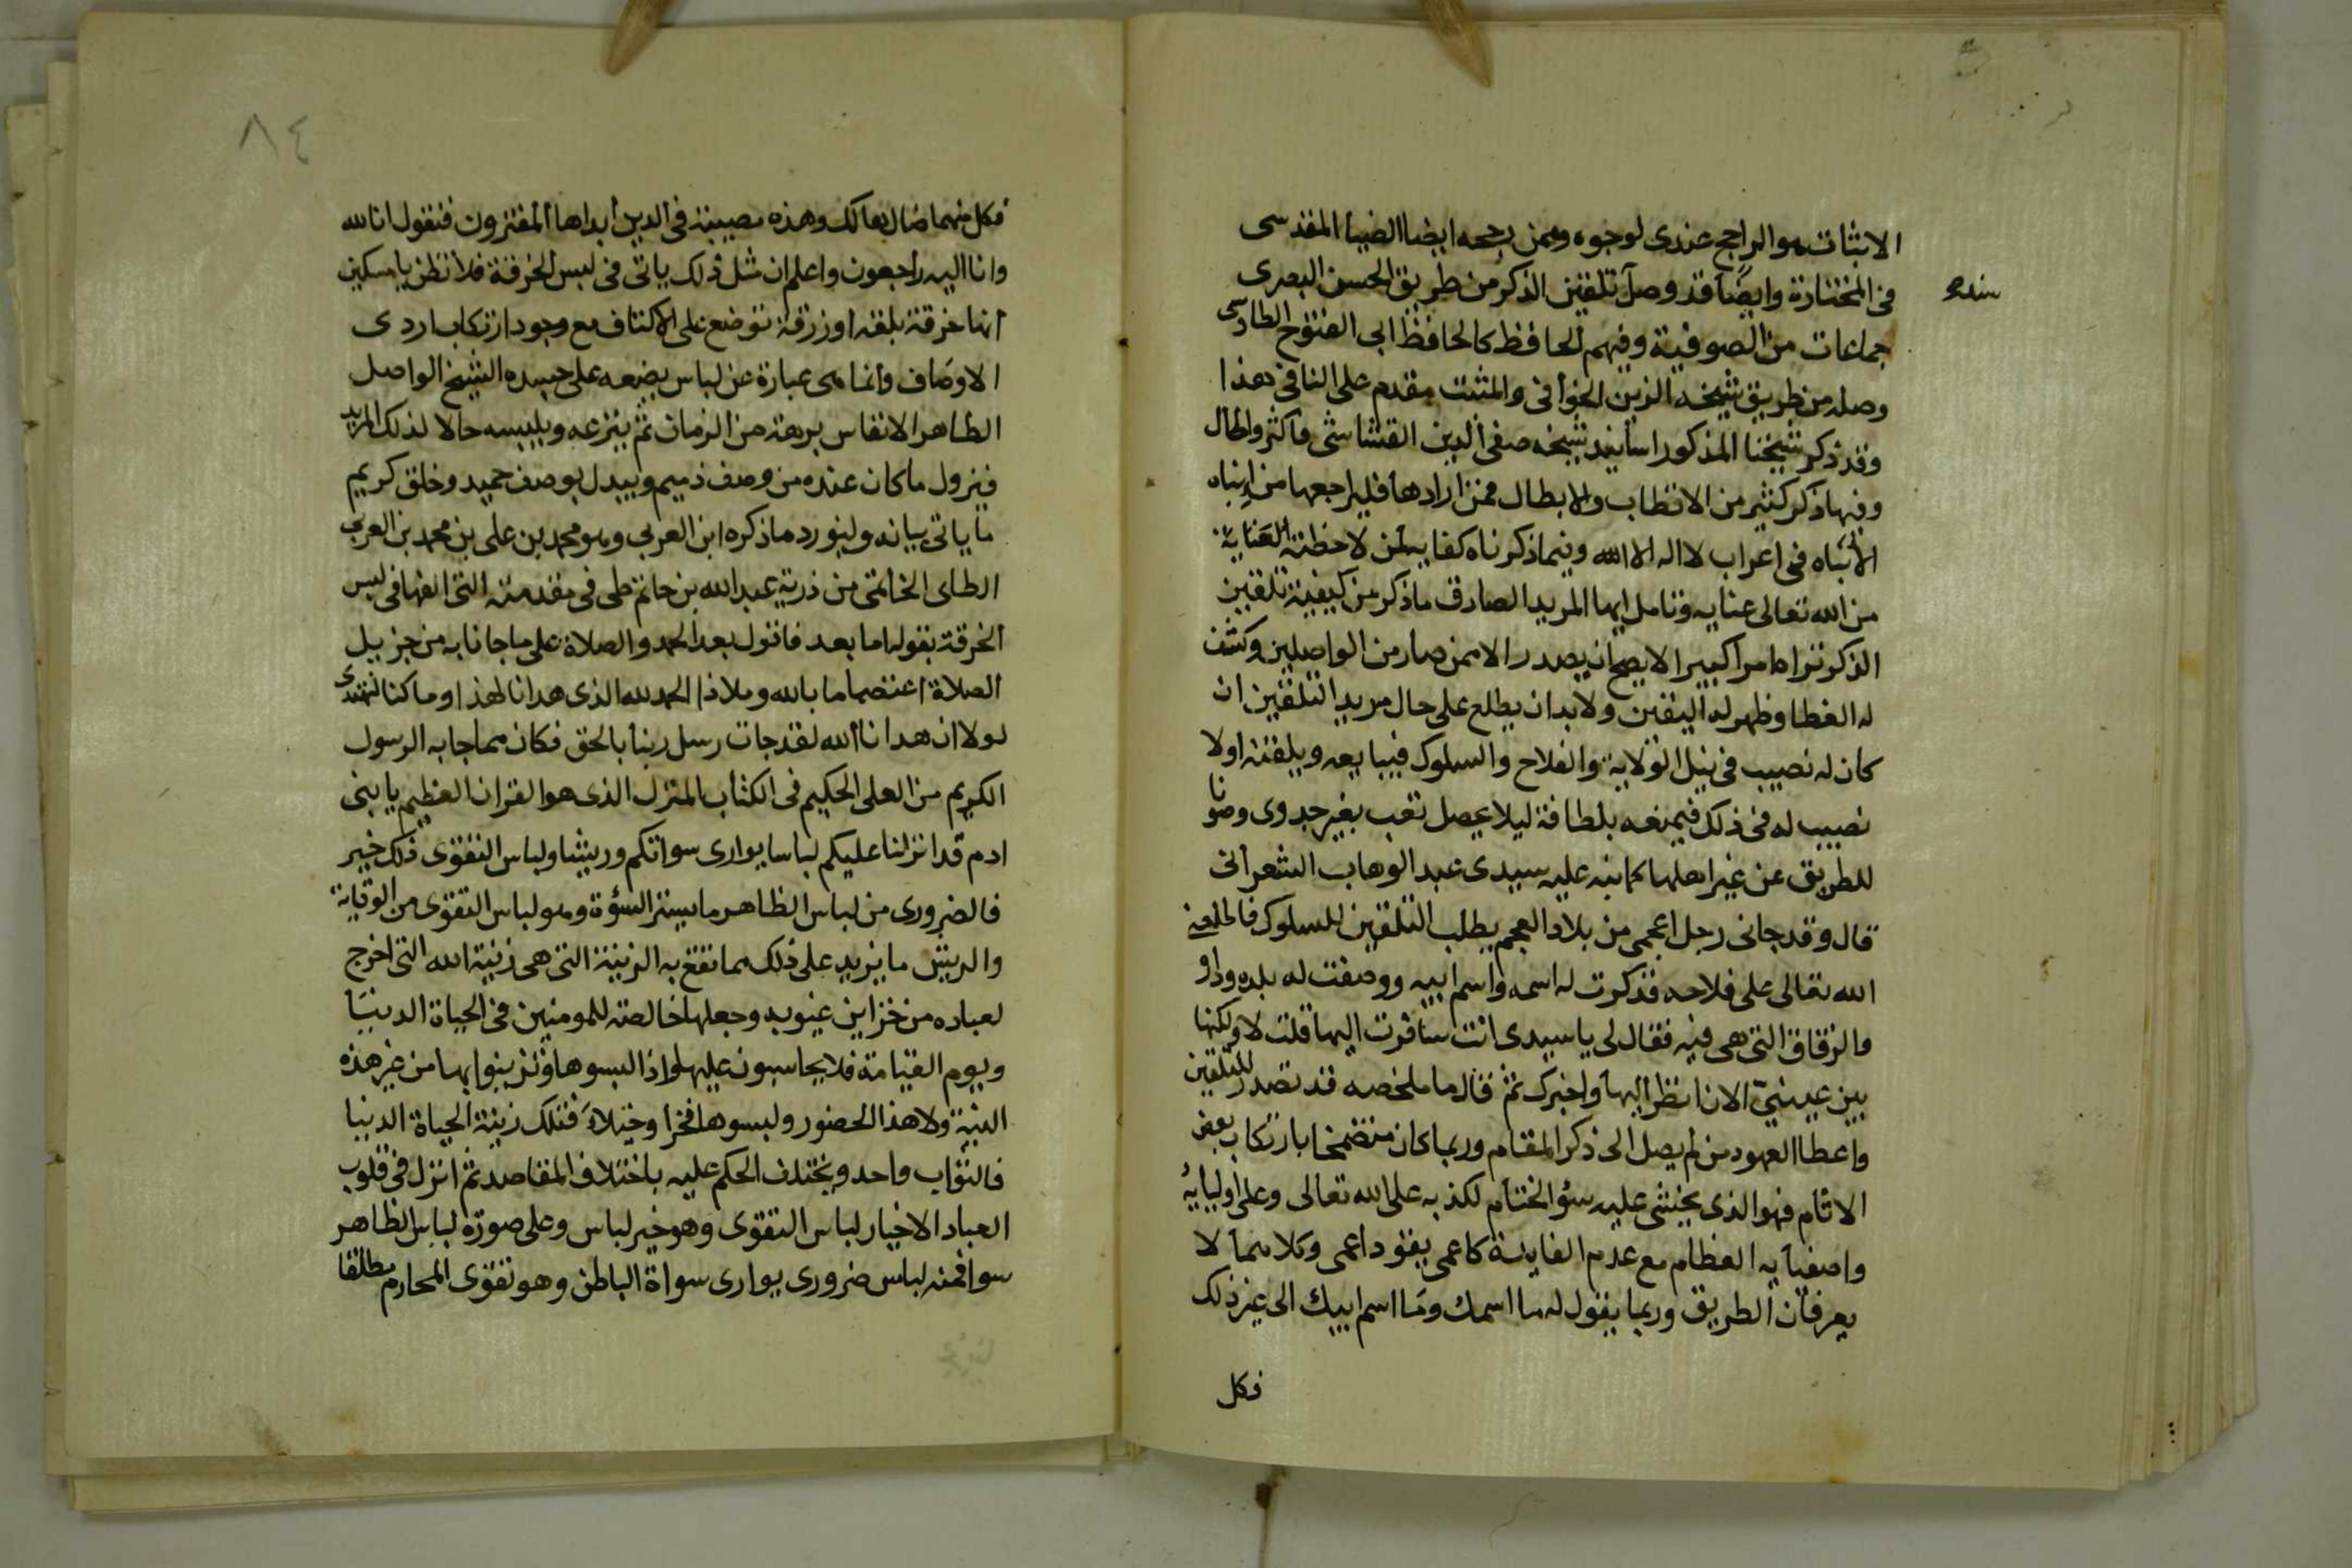 الاثبات هو الراجح عندى لوجوه وممن رجحه ايضا الضيا المقدسى
فى المختارة وايضًا قد وصل تلقين الذكر من طريق الحسن البصرى
سنده
جماعات من الصوفية وفيهم الحافظ كالحافظ ابى الفتوح الطاوسى
وصله من طريق شيخه الزين الخوافى والمثبت مقدم على النافى هذا
وقد ذكر شيخنا المذكور اسانيد شيخه صفى الدين القشاشى فاكثر واطال
وفيها ذكر كثير من الاقطاب والابطال فمن ارادها فليراجعها من انباه
الانباه فى اعراب لا اله الا الله وفيما ذكرناه كفاية لمن لاحظته العناية
من الله تعالى عنايه وتامل ايها المريد الصادق ما ذكر من كيفية تلقين
الذكر تراه امرا كبيرا لا يصح ان يصدر الا ممن صار من الواصلين وكشف
له الغطا وظهر له اليقين ولا بد ان يطلع على حال مريد التلقين ان
كان له نصيب فى نيل الولاية والفلاح والسلوك فيبايعه ويلقنه اولا
نصيب له فى ذلك فيمنعه بلطافة ليلا يحصل تعب بغير جدوى وصونا
للطريق عن غير اهلها كما نبه عليه سيدى عبد الوهاب الشعرانى
قال وقد جانى رجل اعجمى من بلاد العجم يطلب التلقين للسلوك فاطلعنى
الله تعالى على فلاحه فذكرت له اسمه واسم ابيه ووصفت له بلده وداره
والزقاق التى هى فيه فقال لى يا سيدى انت سافرت اليها قلت لا ولكنها
بين عينىّ الان انظر اليها واخبرك ثم قال ما ملخصه قد تصدر للتلقين
واعطا العهود من لم يصل الى ذكر المقام وربما كان متضمخا بارتكاب بعض
الاثام فهو الذى يخشى عليه سؤ الختام لكذبه على الله تعالى وعلى اوليايه
واصفيايه العظام مع عدم الفايدة كاعمى يقود اعمى وكلاهما لا
يعرفان الطريق وربما يقول له ما اسمك وما اسم ابيك الى غير ذلك
فكل
٨٤
فكل منهما ضال هالك وهذه مصيبة فى الدين ابداها المفترون فنقول انا لله
وانا اليه راجعون واعلم ان مثل ذلك ياتى فى لبس الخرقة فلا تظن يا مسكين
انها خرقة بلقه او زرقة توضع على الاكتاف مع وجود ارتكاب اردى
الاوصاف وانما هى عبارة عن لباس يضعه على جسده الشيخ الواصل
الطاهر الانفاس برهة من الزمان ثم ينزعه ويلبسه حالا لذلك المريد
فيزول ما كان عنده من وصف ذميم ويبدل بوصف حميد وخلق كريم
ما ياتى بيانه ولنورد ما ذكره ابن العربي وهو محمد بن على بن محمد بن العربي
الطاى الحاتمى من ذرية عبد الله بن حاتم طى فى مقدمته التى الفها فى لبس
الخرقة بقوله اما بعد فاقول بعد الحمد والصلاة على ما جانا به من جزيل
الصلاة اعتصاما بالله وملاذا الحمد لله الذى هدانا لهذا وما كنا لنهتدى
لولا ان هدانا الله لقد جات رسل ربنا بالحق فكان مما جا به الرسول
الكريم من العلى الحكيم فى الكتاب المنزل الذى هو القران العظيم يا بنى
ادم قد انزلنا عليكم لباسا يوارى سواتكم وريشا ولباس التقوى ذلك خير
فالضرورى من لباس الظاهر ما يستر السؤة وهو لباس التقوى من الوقاية
والريش ما يزيد على ذلك مما تقع به الزينة التى هى زينة الله التى اخرج
لعباده من خزاين غيوبه وجعلها خالصة للمومنين فى الحياة الدنيا
ويوم القيامة فلا يحاسبون عليها واذا لبسوها وتزينوا بها من غير هذه
النية ولا هذا الحضور ولبسوها فخرا وخيلاءَ فتلك زينة الحياة الدنيا
فالثواب واحد ويختلف الحكم عليه باختلاف المقاصد ثم انزل فى قلوب
العباد الاخيار لباس التقوى وهو خير لباس وعلى صورة لباس الظاهر
سوا فمنه لباس ضرورى يوارى سواة الباطن وهو تقوى المحارم مطلقا